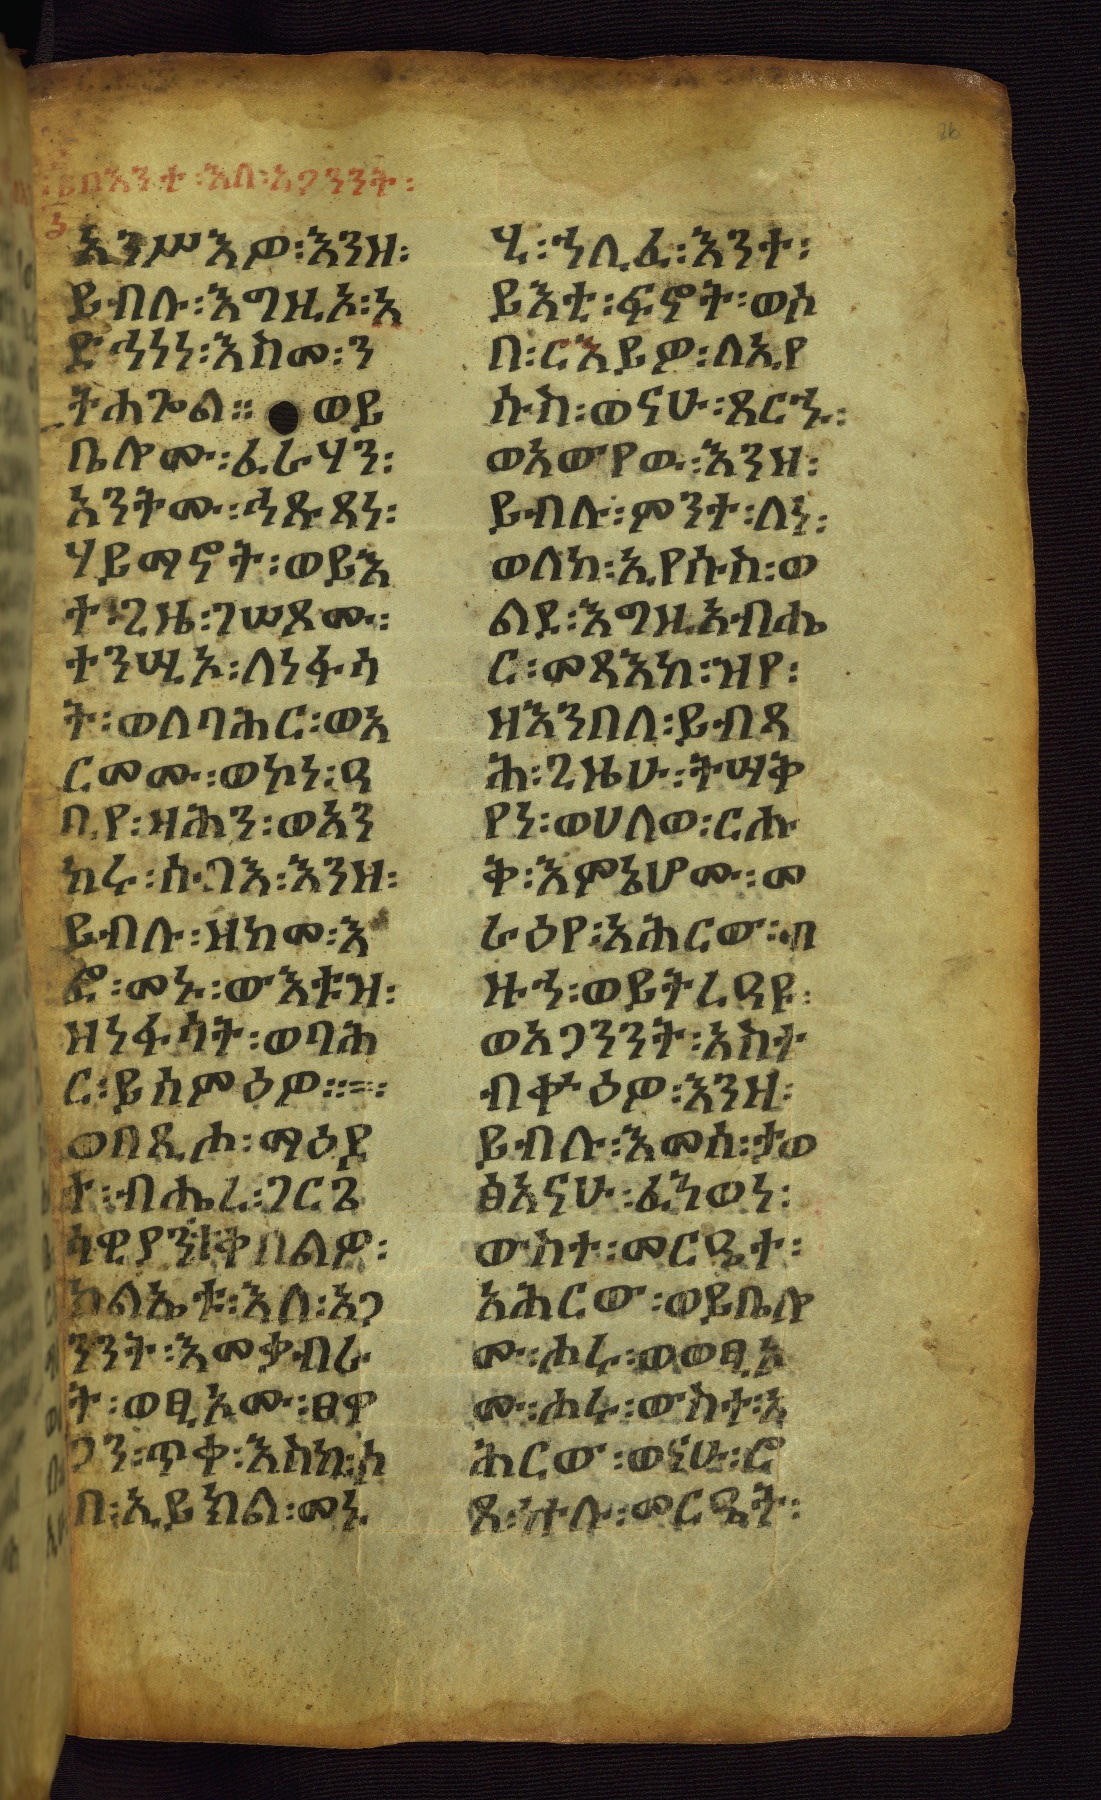 በእንተ፡እለ፡አጋንንት፡
አንሥእዎ፡እንዘ፡
ይብሉ፡እግዚኦ፡አ
ድኅነነ፡እስመ፡ን
ትሐጐል። ወይ
ቤሎሙ፡ፈራሃን፡
አንትሙ፡ኅጹጻነ፡
ሃይማኖት፡ወይእ
ተ፡ጊዜ፡ገሠጾሙ፡
ተንሢኦ፡ለነፋሳ
ት፡ወለባሕር፡ወአ
ርመሙ፡ወኮነ፡ዓ
ቢየ፡ዛሕን፡ወአን
ከሩ፡ሰብእ፡እንዘ፡
ይብሉ፡ዘከመ፡እ
ፎ፡መኑ፡ውእቱ፡ዝ፡
ዘነፋሳት፡ወባሕ
ር፡ይሰምዕዎ።=።
ወበጺሖ፡ማዕደ
ተ፡ብሔረ፡ገርጌ
ሳዊያን፡ተቀበልዎ፡
ክልኤቱ፡እለ፡አጋ
ንንት፡እመቃብራ
ት፡ወፂኦሙ፡ፀዋ
ጋን፡ጥቀ፡እስከ፡ሶ
በ፡ኢይክል፡መኑ
ሂ፡ኀሊፈ፡እንተ፡
ይእቲ፡ፍኖት፡ወሶ
በ፡ርእይዎ፡ለኢየ
ሱስ፡ወናሁ፡ጸርኁ፡
ወአውየዉ፡እንዘ፡
ይብሉ፡ምንተ፡ለነ፡
ወለከ፡ኢየሱስ፡ወ
ልደ፡እግዚአብሔ
ር፡መጻእከ፡ዝየ፡
ዘእንበለ፡ይብጻ
ሕ፡ጊዜሁ፡ትሣቅ
የነ፡ወሀለወ፡ርሑ
ቅ፡እምኔሆሙ፡መ
ራዕየ፡አሕርው፡ብ
ዙኅ፡ወይትረዓዩ፡
ወአጋንንት፡አስተ
ብቍዕዎ፡እንዘ፡
ይብሉ፡እመሰ፡ታወ
ፅአናሁ፡ፈንወነ፡
ውስተ፡መርዔተ፡
አሕርው፡ወይቤሎ
ሙ፡ሑሩ፡ወወፂኦ
ሙ፡ሖሩ፡ውስተ፡አ
ሕርው፡ወናሁ፡ሮ
ጸ፡ኵሉ፡መርዔት፡